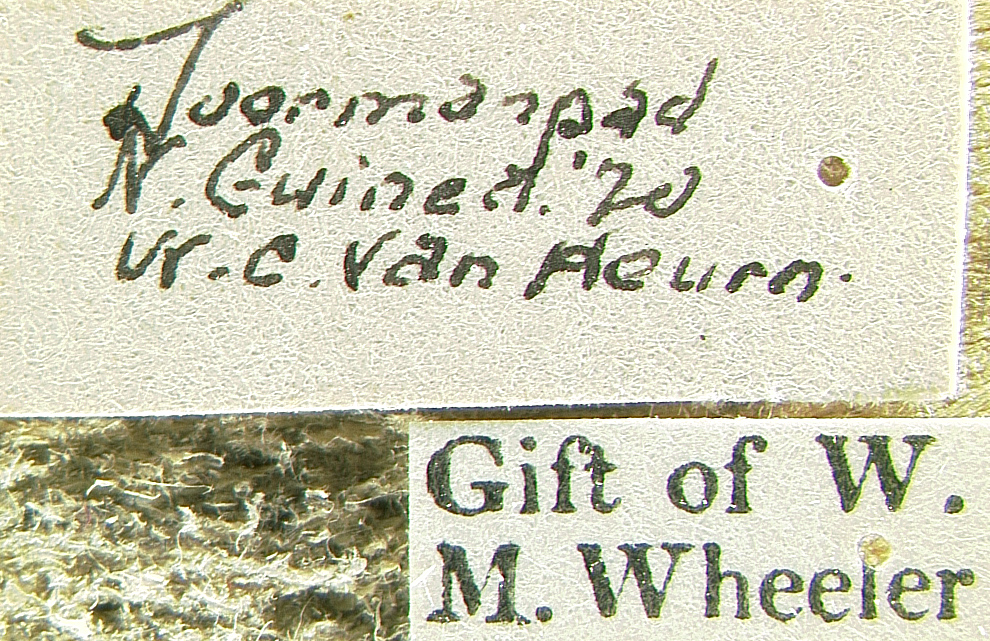 Doormanpad
N. Guinea. '20
W. C. van Heurn.
Gift of W.
M. Wheeler